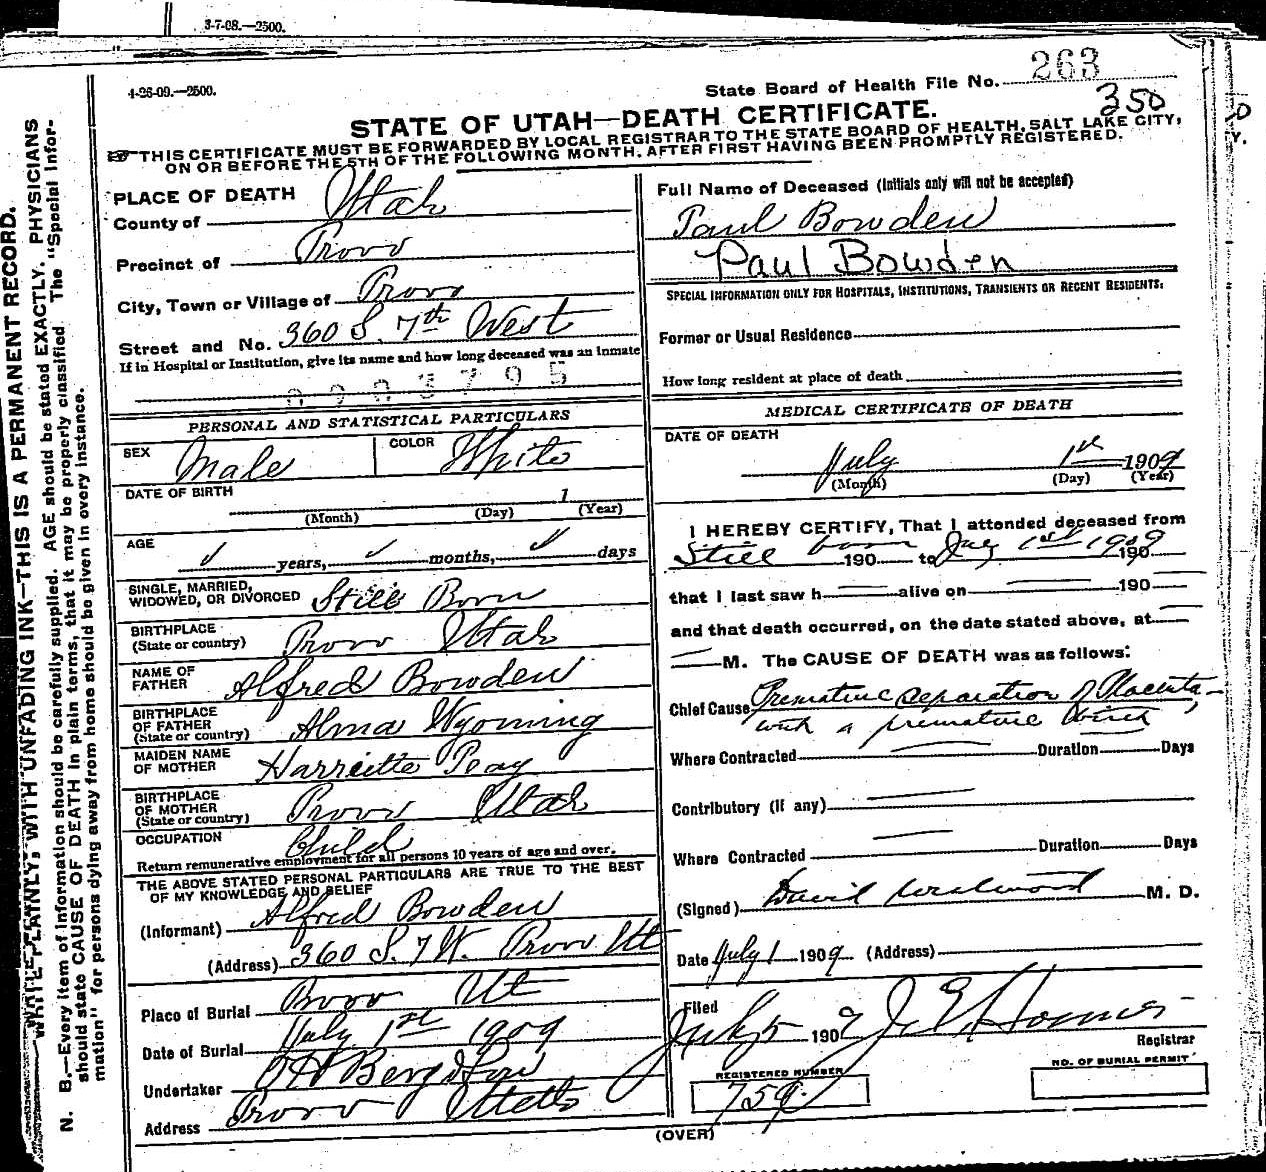 3-7-08.—2500.
4-26-09.—2500.
State Board of Health File No. 263
350
STATE OF UTAH—DEATH CERTIFICATE.
THIS CERTIFICATE MUST BE FORWARDED BY LOCAL REGISTRAR TO THE STATE BOARD OF HEALTH, SALT LAKE CITY,
ON OR BEFORE THE 5TH OF THE FOLLOWING MONTH, AFTER FIRST HAVING BEEN PROMPTLY REGISTERED.
WRITE PLAINLY, WITH UNFADING INK—THIS IS A PERMANENT RECORD.
N. B.—Every item of information should be carefully supplied. AGE should be stated EXACTLY. PHYSICIANS
should state CAUSE OF DEATH in plain terms, that it may be properly classified. The "Special Infor-
mation" for persons dying away from home should be given in every instance.
PLACE OF DEATH
County of Utah
Precinct of Provo
City, Town or Village of Provo
Street and No. 360 S. 7th West
If in Hospital or Institution, give its name and how long deceased was an inmate
0003795
PERSONAL AND STATISTICAL PARTICULARS
SEX Male COLOR White
DATE OF BIRTH 1
(Month) (Day) (Year)
AGE ✓ years, ✓ months, ✓ days
SINGLE, MARRIED,
WIDOWED, OR DIVORCED Still Born
BIRTHPLACE
(State or country) Provo Utah
NAME OF
FATHER Alfred Bowden
BIRTHPLACE
OF FATHER
(State or country) Alma Wyoming
MAIDEN NAME
OF MOTHER Harriette Peay
BIRTHPLACE
OF MOTHER
(State or country) Provo Utah
OCCUPATION Child
Return remunerative employment for all persons 10 years of age and over.
THE ABOVE STATED PERSONAL PARTICULARS ARE TRUE TO THE BEST
OF MY KNOWLEDGE AND BELIEF
(Informant) Alfred Bowden
(Address) 360 S. 7 W. Provo Ut
Place of Burial Provo Ut
Date of Burial July 1st 1909
Undertaker O H Berg & Son
Address Provo Utah
Full Name of Deceased (Initials only will not be accepted)
Paul Bowden
Paul Bowden
SPECIAL INFORMATION ONLY FOR HOSPITALS, INSTITUTIONS, TRANSIENTS OR RECENT RESIDENTS:
Former or Usual Residence
How long resident at place of death
MEDICAL CERTIFICATE OF DEATH
DATE OF DEATH
July 1st 1909
(Month) (Day) (Year)
I HEREBY CERTIFY, That I attended deceased from
Still born 190 to July 1st 1909 190
that I last saw h alive on 190
and that death occurred, on the date stated above, at
M. The CAUSE OF DEATH was as follows:
Chief Cause Premature separation of Placenta,
with a premature birth
Where Contracted Duration Days
Contributory (if any)
Where Contracted Duration Days
(Signed) David Westwood M. D.
Date July 1 1909 (Address)
Filed
July 5 1909 J E Homer
Registrar
REGISTERED NUMBER
759
NO. OF BURIAL PERMIT
(OVER)